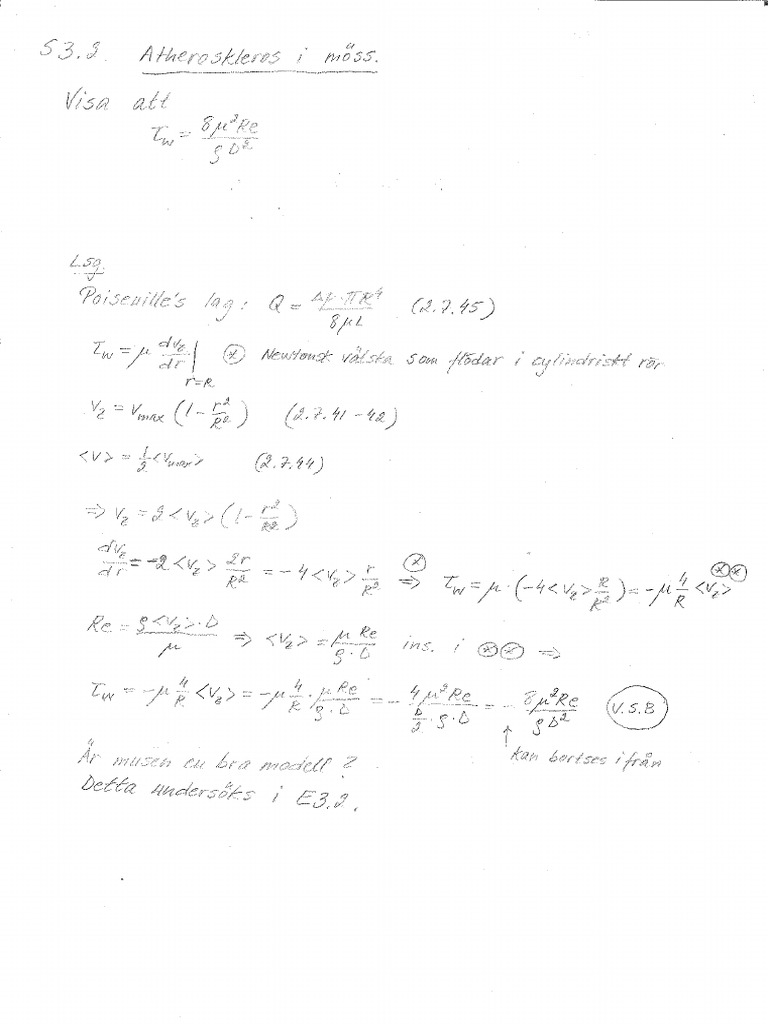 S3.2. Atheroskleros i möss.
Visa att
τ_w = 8μ²Re / ρD²
Lsg.
Poiseuille's lag: Q = Δp·πR⁴ / 8μL (2.7.45)
τ_w = μ dv_z/dr |_{r=R} ⊛ Newtonsk vätska som flödar i cylindriskt rör
v_z = v_max (1 - r²/R²) (2.7.41-42)
<v> = ½<v_max> (2.7.44)
⇒ v_z = 2<v_z>(1 - r²/R²)
dv_z/dr = -2<v_z> 2r/R² = -4<v_z> r/R² ⊛⇒ τ_w = μ·(-4<v_z> R/R²) = -μ 4/R <v_z> ⊛⊛
Re = ρ<v_z>·D / μ ⇒ <v_z> = μ Re / ρ·D ins. i ⊛⊛ ⇒
τ_w = -μ 4/R <v_z> = -μ 4/R · μ Re / ρ·D = - 4μ²Re / (D/2 · ρ · D) = - 8μ²Re / ρD² V.S.B
↑ kan bortses ifrån
Är musen en bra modell?
Detta undersöks i E3.2.